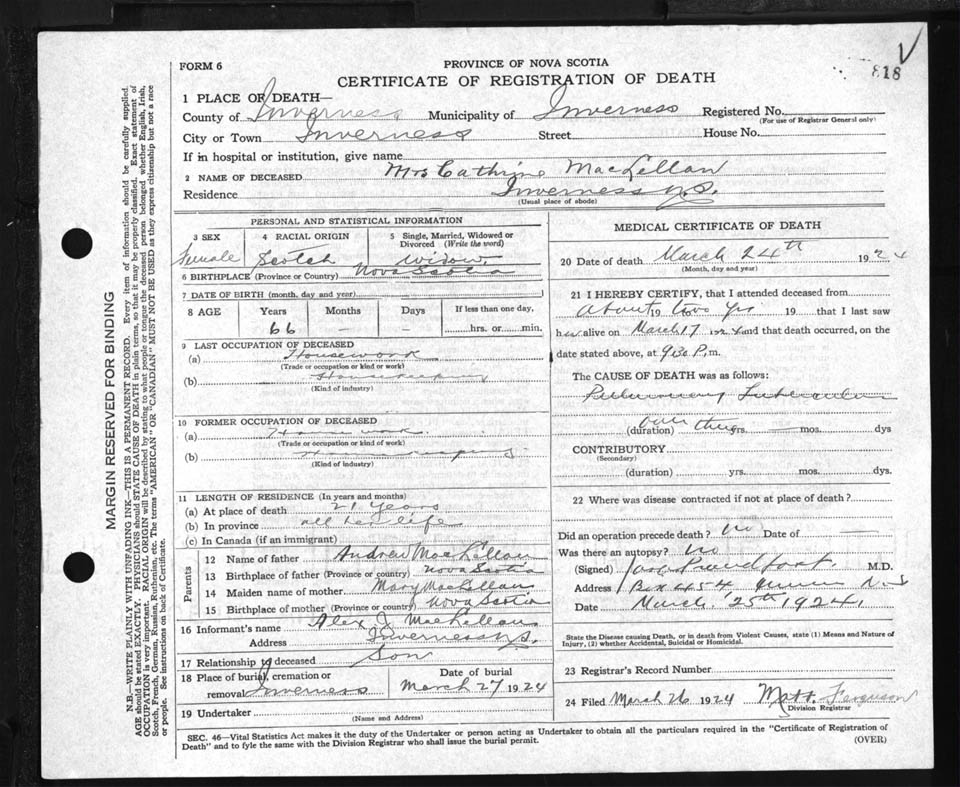 FORM 6
PROVINCE OF NOVA SCOTIA
CERTIFICATE OF REGISTRATION OF DEATH
818
1 PLACE OF DEATH—
County of Inverness Municipality of Inverness Registered No.
(For use of Registrar General only)
City or Town Inverness Street House No.
If in hospital or institution, give name
2 NAME OF DECEASED Mrs Cathrine MacLellan
Residence Inverness N.S.
(Usual place of abode)
PERSONAL AND STATISTICAL INFORMATION
3 SEX 4 RACIAL ORIGIN 5 Single, Married, Widowed or Divorced (Write the word)
Female Scotch Widow
6 BIRTHPLACE (Province or Country) Nova Scotia
7 DATE OF BIRTH (month, day and year)
8 AGE Years Months Days If less than one day,
66 – – hrs. or min.
9 LAST OCCUPATION OF DECEASED
(a) Housework
(Trade or occupation or kind or work)
(b) Housekeeping
(Kind of industry)
10 FORMER OCCUPATION OF DECEASED
(a) House work
(Trade or occupation or kind of work)
(b) Housekeeping
(Kind of industry)
11 LENGTH OF RESIDENCE (In years and months)
(a) At place of death 21 Years
(b) In province all her life
(c) In Canada (if an immigrant)
Parents
12 Name of father Andrew MacLellan
13 Birthplace of father (Province or country) Nova Scotia
14 Maiden name of mother Mary MacLellan
15 Birthplace of mother (Province or country) Nova Scotia
16 Informant's name Alex J. MacLellan
Address Inverness N.S.
17 Relationship to deceased Son
18 Place of burial, cremation or removal Inverness
Date of burial
March 27 1924
19 Undertaker
(Name and Address)
MEDICAL CERTIFICATE OF DEATH
20 Date of death March 24th 1924
(Month, day and year)
21 I HEREBY CERTIFY, that I attended deceased from
About 19 two yrs 19 that I last saw
her alive on March 17 1924 and that death occurred, on the
date stated above, at 9 30 P. m.
The CAUSE OF DEATH was as follows:
Pulmonary Tuberculosis
(duration) over three yrs. mos. dys
CONTRIBUTORY
(Secondary)
(duration) yrs. mos. dys.
22 Where was disease contracted if not at place of death?
Did an operation precede death? no Date of
Was there an autopsy? no
(Signed) M.D.
Address Box 454 N.S
Date March 25th 1924
State the Disease causing Death, or in death from Violent Causes, state (1) Means and Nature of
Injury, (2) whether Accidental, Suicidal or Homicidal.
23 Registrar's Record Number
24 Filed March 26 1924 Matt. Ferguson
Division Registrar
SEC. 46—Vital Statistics Act makes it the duty of the Undertaker or person acting as Undertaker to obtain all the particulars required in the "Certificate of Registration of
Death" and to fyle the same with the Division Registrar who shall issue the burial permit.
(OVER)
MARGIN RESERVED FOR BINDING
N.B.—WRITE PLAINLY WITH UNFADING INK—THIS IS A PERMANENT RECORD. Every item of information should be carefully supplied.
AGE should be stated EXACTLY. PHYSICIANS should STATE CAUSE OF DEATH in plain terms, so that it may be properly classified. Exact statement of
OCCUPATION is very important. RACIAL ORIGIN will be described by stating to what people or tongue the deceased person belonged whether English, Irish,
Scotch, French, German, Russian, Ruthenian, etc. The terms "AMERICAN" OR "CANADIAN" MUST NOT BE USED as they express citizenship but not a race
or people. See instructions on back of Certificate.